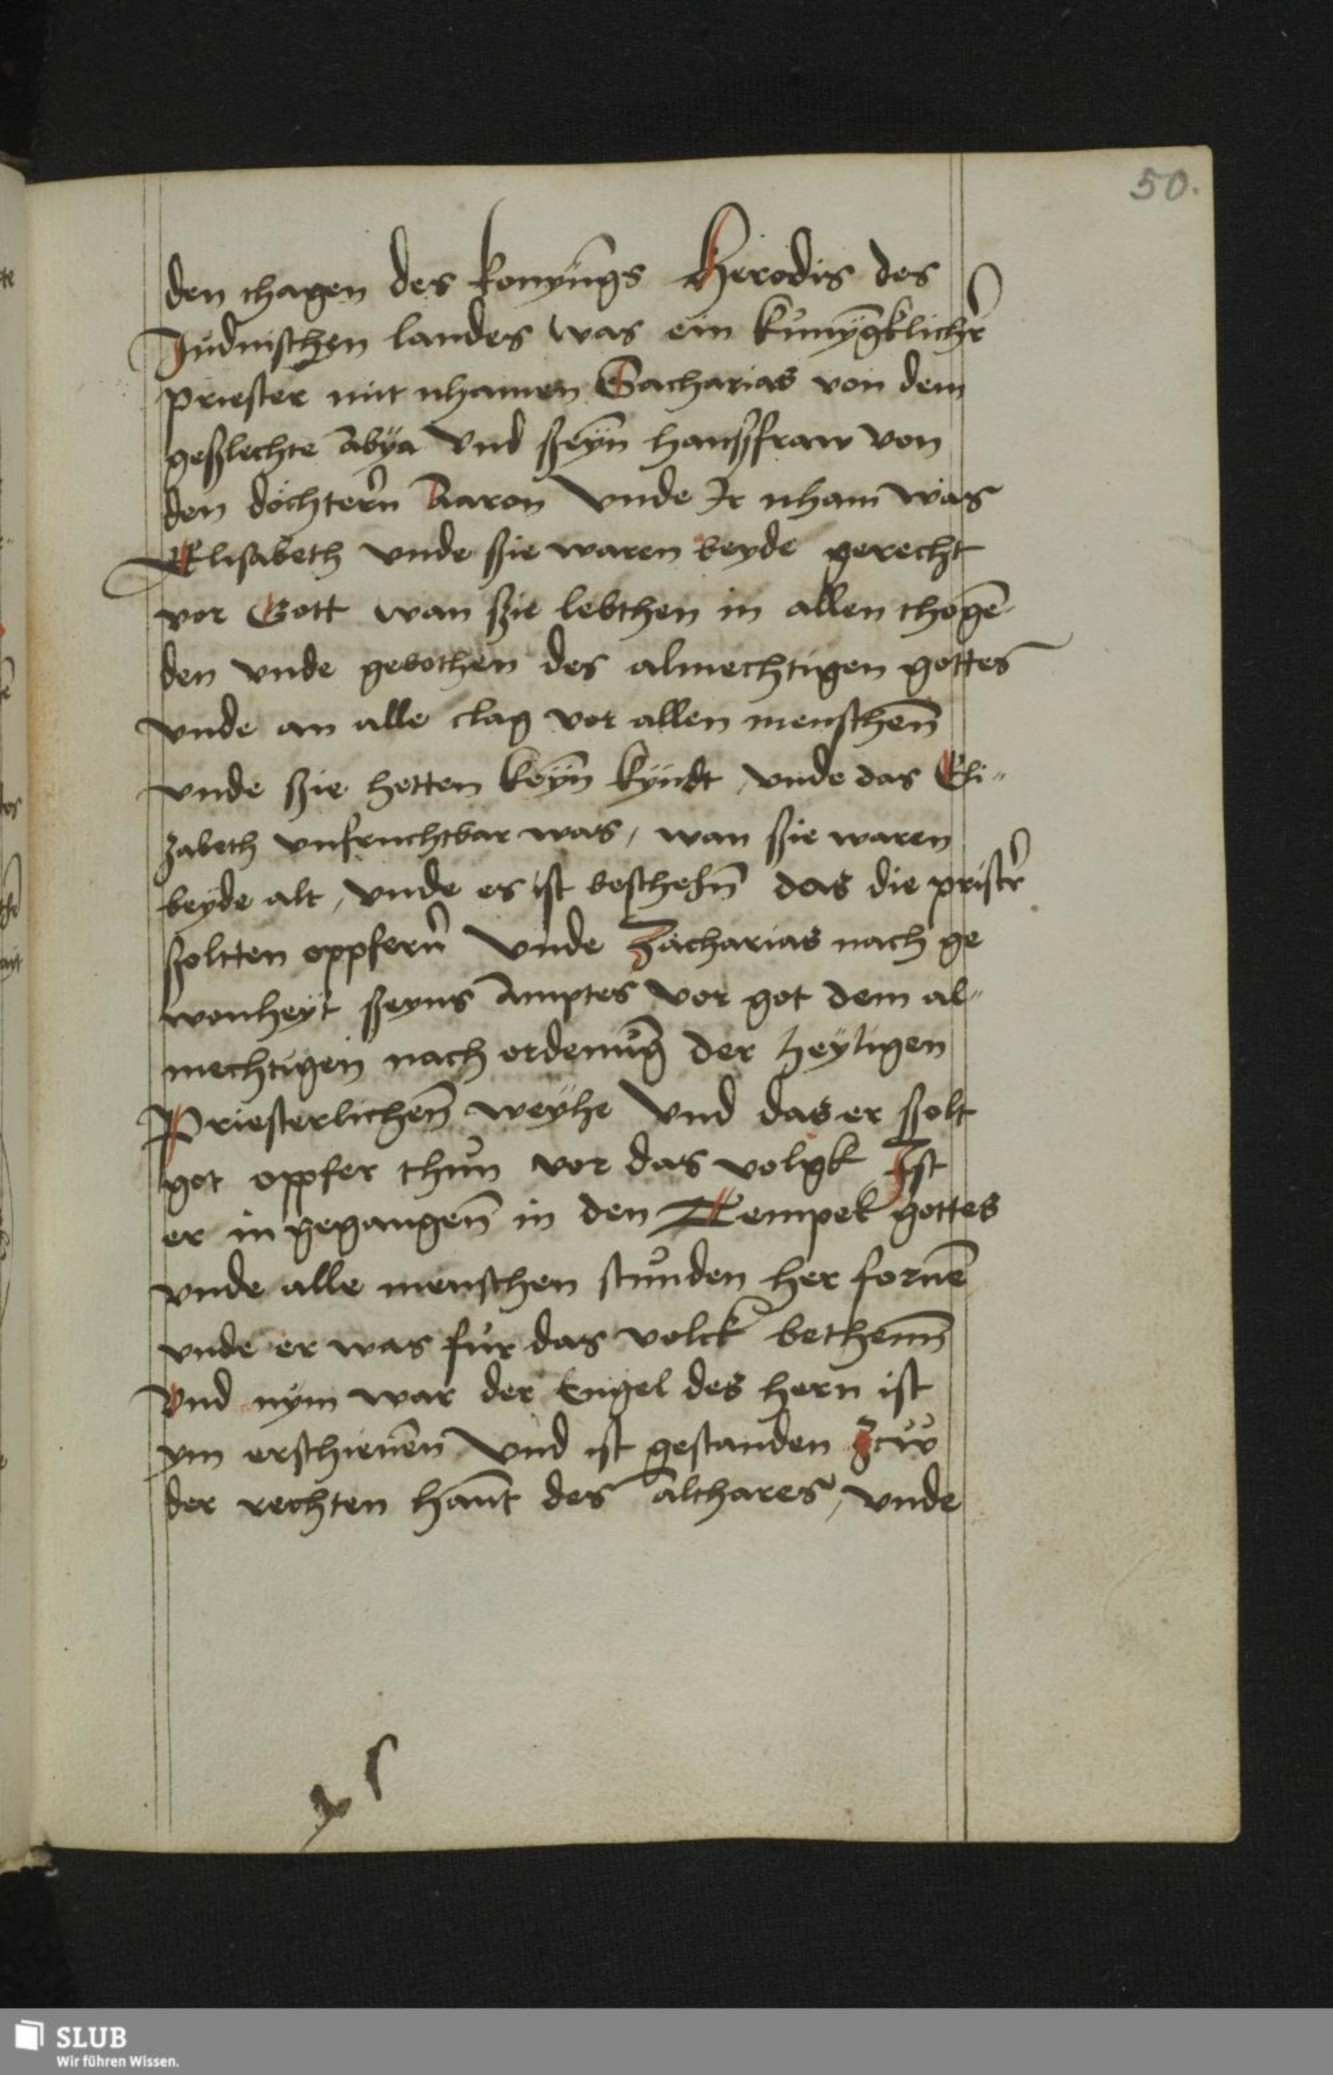 50.
den thagen des konyngs Herodis des
Judnischen landes was ein kunyḡklichr̄
priester mit nhamen Sacharias von dem
geßlechte Abÿa Vnd ßeyn haußfraw von
den döchtern̄ Aaron Vnde Jr nham was
Elisabeth vnde ßie waren beyde gerecht
vor Gott wan ßie lebthen in allen thogē
den vnde gebothen des almechtigen gottes
vnde an alle clag vor allen menschen̄
vnde ßie hetten keyn̄ kyndt, vnde das Eli-
zabeth vnfruchtbar was, wan ßie waren
beyde alt, vnde es ist beschehn̄ das die pristr̄
ßoltten oppfern̄ Vnde Zacharias nach ge
wonheyt ßeyns Amptes vor got dem al-
mechtigen nach ordenuḡ der heyligen
Priesterlichen̄ weyhe Vnd das er ßolt
got oppfer thun vor das volgk Jst
er in gegangen̄ in den Tempel gottes
vnde alle menschen stunden her fornē
vnde er was fur das volck bethenn̄
Vnd nym war der Engel des hern ist
ym erschienen̄ Vnd ist gestanden zcw
der rechten hant̄ des althares, vnde
SLUB
Wir führen Wissen.